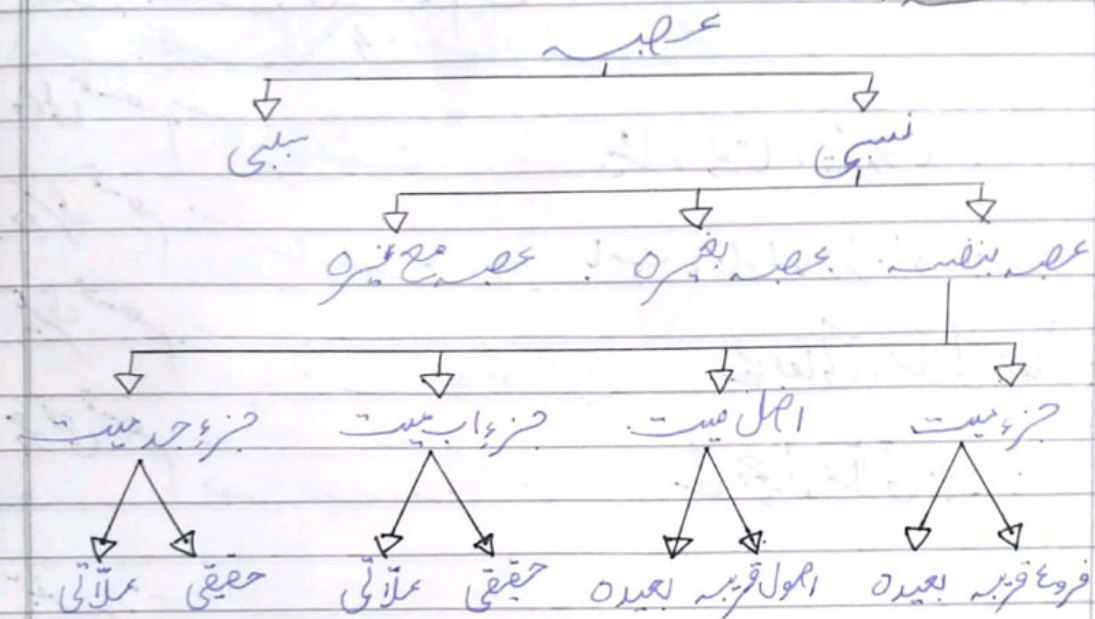 عصبہ
نسبی سببی
عصبہ بنفسہ عصبہ بغیرہ عصبہ مع غیرہ
جزء میت اصل میت جزء اب میت جزء جد میت
فروع قریبہ بعیدہ اصول قریبہ بعیدہ حقیقی علاتی حقیقی علاتی